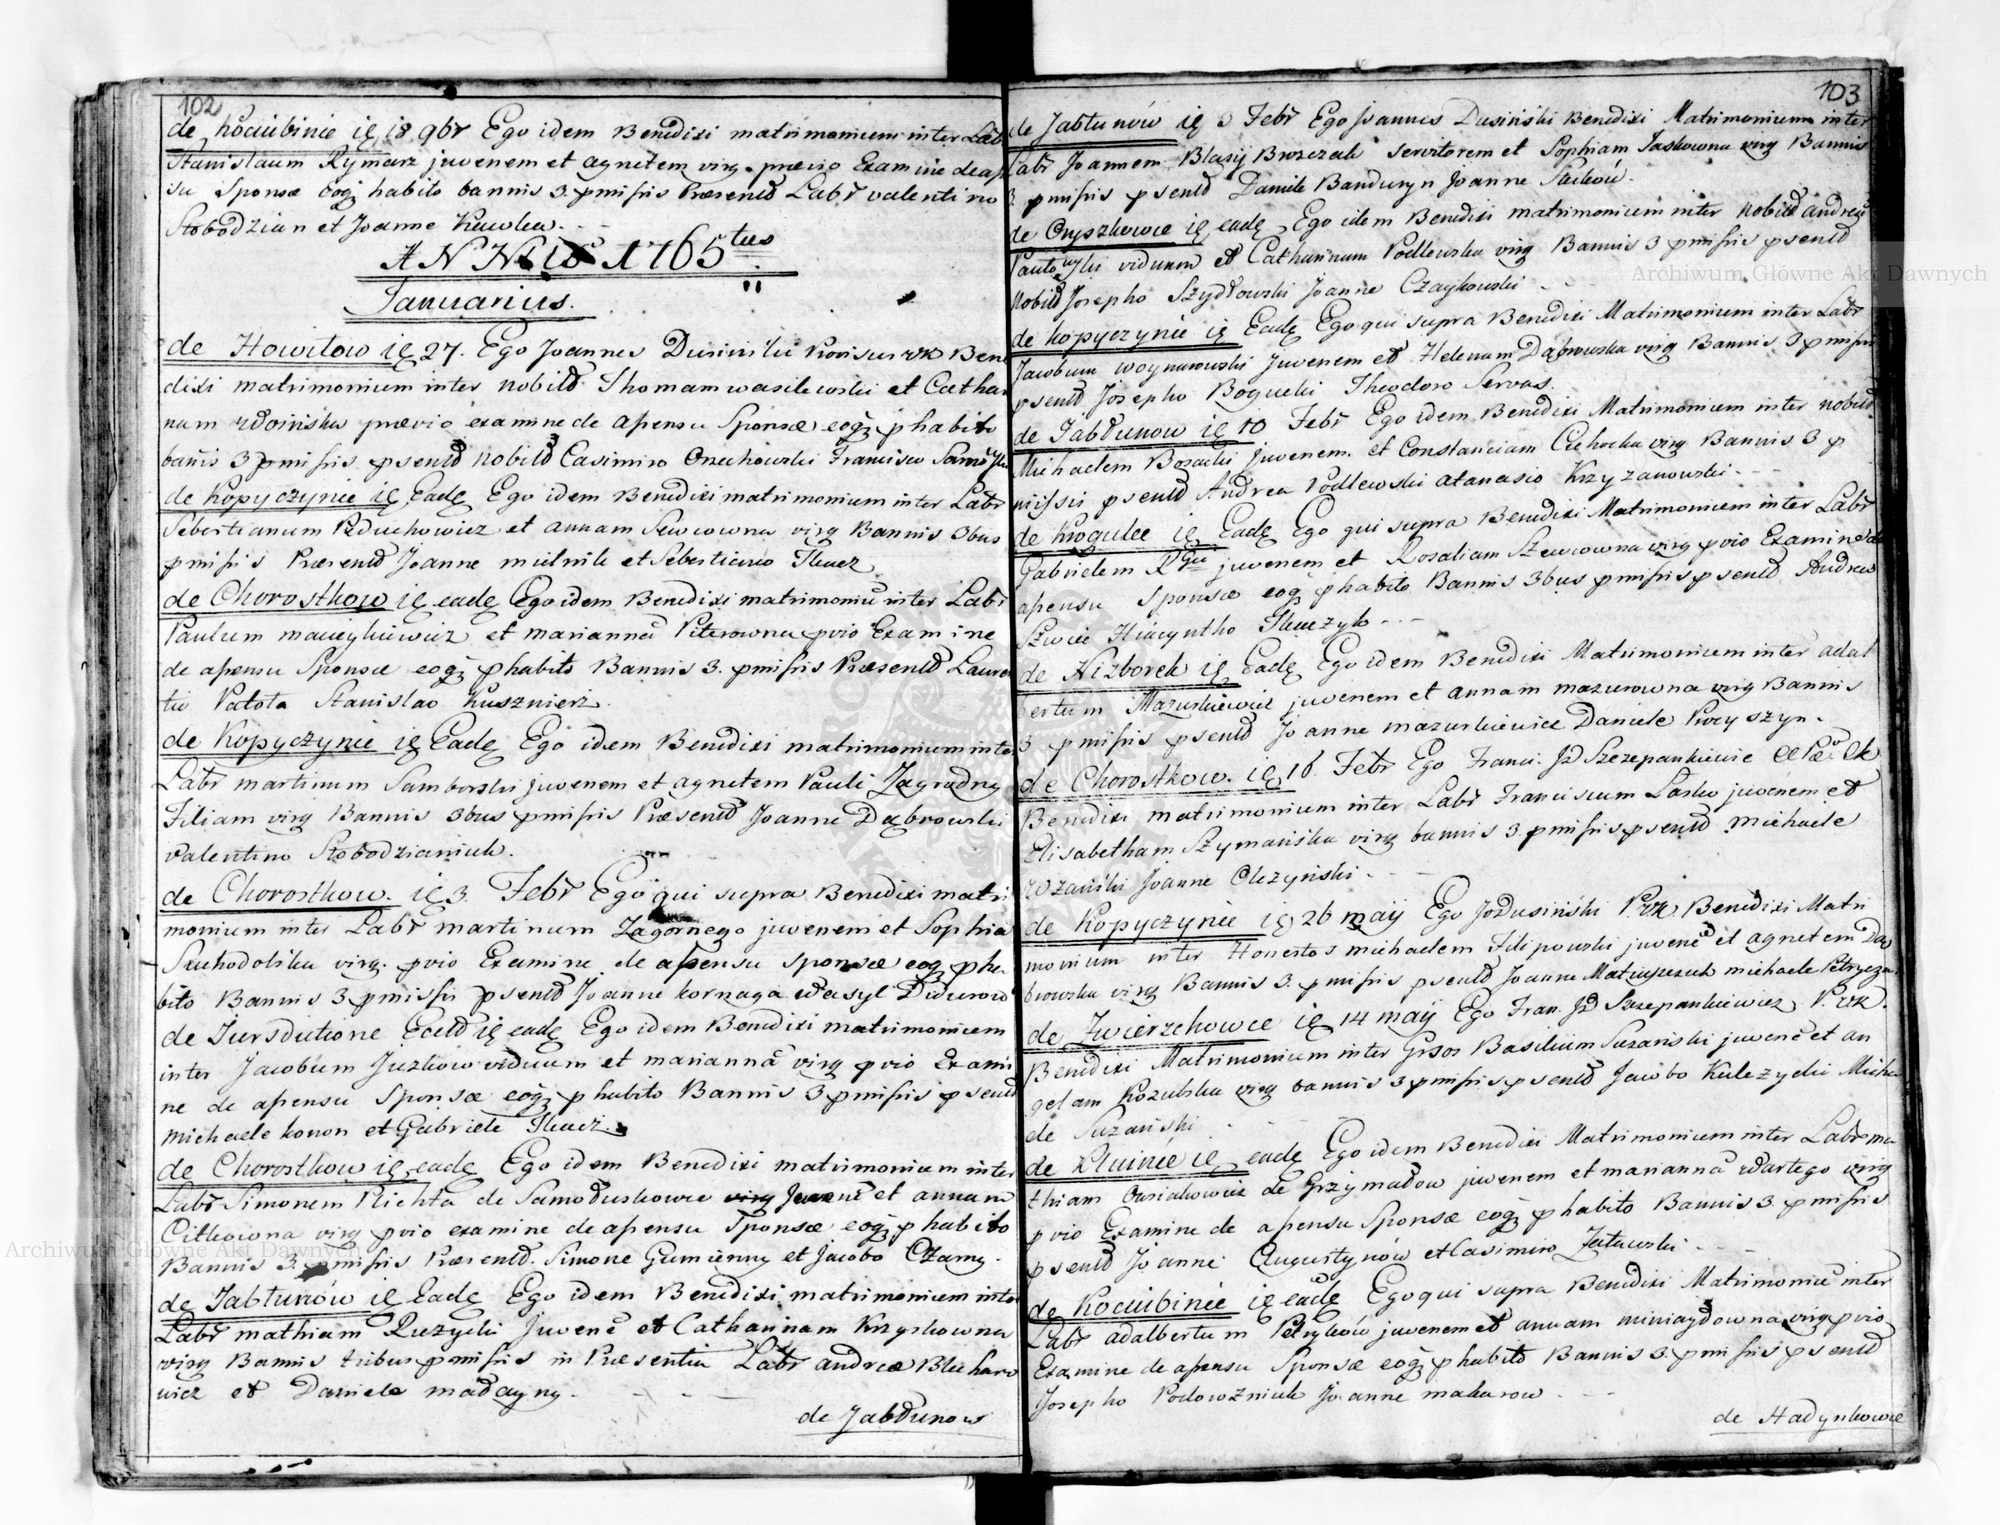 102
de Kociubinie ię 18 9br Ego idem Benedixi matrimonium inter Lab
Stanislaum Rymarz juvenem et agnetem virg. prævio Examine de ap
su Sponsæ habito bannis 3. pmissis Præsentd Labr valentino
Słobodzian et Joanne Kuwlea.
ANNUS 1765tus
Januarius.
de Howiłow ię 27. Ego Joannes Dusinski Bene
dixi matrimonium inter nobild Thomam wasilewski et Catha
nam prævio examine de apensu Sponsæ phabito
banis 3 pmissis psentd nobild Casimiro Orzechowski Francisco
de Kopyczynie ię Eadę Ego idem Benedixi matrimonium inter Labr
Sebestianum Peduchowicz et annam Sewcowna virg Bannis 3bus
pmissis Præsentd Joanne mielnik et Sebestiano Tkacz
de Chorostkow ię eadę Ego idem Benedixi matrimoniu inter Labr
Paulum macieykiewicz et marianna Piterowna pvio Examine
de apensu Sponsæ phabito Bannis 3. pmissis Præsentd Lauren
tio Patota Stanislao Kusznierz.
de Kopyczynie ię Eadę Ego idem Benedixi matrimonium inter
Labr martinum Samborski juvenem et agnetem Pauli Zagrodny
Filiam virg Bannis 3bus pmissis Præsentd Joanne Dąbrowski
valentino Słobodzianiuk.
de Chorostkow. ię 3. Febr Ego qui supra Benedixi matri
monium inter Labr martinum Zagornego juvenem et Sophia
Suchodolska virg. pvio Examine de apensu sponsæ pha
bito Bannis 3 pmissis psentd Joanne kornaga wasyl
de Jursdutione ię eadę Ego idem Benedixi matrimonium
inter Jacobum Juzkow viduum et marianna virg pvio Exami
ne de apensu Sponsæ phabito Bannis 3 pmissis psentd
michaele konon et Gabriele Tkacz.
de Chorostkow ię eadę Ego idem Benedixi matrimonium inter
Labr Simonem Plichta de Samołuskowce virg Juvene et annam
Citkowna virg pvio examine de apensu Sponsæ phabito
Bannis 3. pmissis Præsentd. Simone Gumienny et Jacobo Czarny.
de Jabłunów ię Eadę Ego idem Benedixi matrimonium inter
Labr mathiam Ruzycki Juvene et Catharinam Krzyskowna
virg Bannis tribus pmissis in Præsentia Labr andreæ Blichar
wicz et Daniele
de Jabłunow
103
de Jabłunów ię 3 Febr Ego Joannes Dusiński Benedixi Matrimonium inter
Labr Joannem Blasij Brzezak servitorem et Sophiam Jaskowna virg Bannis
3 pmissis psentd Daniele Banduryn Joanne
de Oryszkowce ię eadę Ego idem Benedixi matrimonium inter nobild Andrea
viduum et Catharinam Podlewska virg Bannis 3 pmissis psentd
nobild Josepho Szydłowski Joanne Czaykowski
de Kopyczynie ię Eadę Ego qui supra Benedixi Matrimonium inter Labr
Jacobum woynarowski Juvenem et Helenam Dąbrowska virg Bannis 3 pmissis
psentd Josepho Bogucki Theodoro Serwas.
de Jabłunow ię 10 Febr Ego idem Benedixi Matrimonium inter nobild
Michaelem Bosacki juvenem. et Constanciam Cichocka virg Bannis 3 p
missis psentd Andrea Podlewski atanasio Krzyzanowski
de Krogulec ię Eadę Ego qui supra Benedixi Matrimonium inter Labr
Gabrielem juvenem et Rosaliam Szewcowna virg pvio Examine de
apensu Sponsæ phabito Bannis 3bus pmissis psentd Andrea
Szwiec Hiacyntho Tkaczyk
de Nizborek ię Eadę Ego idem Benedixi Matrimonium inter adal
bertum Mazurkiewicz juvenem et annam mazurowna virg Bannis
3 pmissis psentd Joanne mazurkiewicz Daniele
de Chorostkow. ię 16. Febr Ego Franci. Jd Szczepankiewic
Benedixi matrimonium inter Labr Franciscum Lasko juvenem et
Elisabetham Szymańska virg bannis 3. pmissis psentd michaele
Joanne Olczyński
de Kopyczynie ię 26 maij Ego Jo Dusiński Benedixi Matri
monium inter Honestos michaelem Filipowski juvene et agnetem Dą
browska virg Bannis 3. pmissis psentd Joanne Matuszczak michaele
de Zwierzchowce ię 14 maij Ego Fran. Jd Szczepankiewicz
Benedixi Matrimonium inter Gsos Basilium Suzański juvene et an
gelam Kozubska virg bannis 3 pmissis psentd Jacobo Kulczycki Micha
ele Suzański
de ię eadę Ego idem Benedixi Matrimonium inter Labr ma
thiam Owsiakowicz de Grzymałow juvenem et marianna virg
pvio Examine de apensu Sponsæ phabito Bannis 3. pmissis
psentd Joanne Augustynów et Casimiro
de Kociubinie ię eadę Ego qui supra Benedixi Matrimoniu inter
Labr adalbertum Petryków juvenem et annam virg pvio
Examine de apensu Sponsæ phabito Bannis 3. pmissis psentd
Josepho Podowzniuk Joanne makarow
de Hadynkowce
Archiwum Główne Akt Dawnych
Archiwum Główne Akt Dawnych